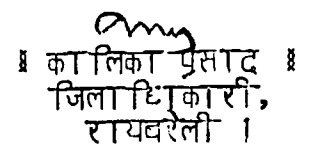 ॥ कालिका प्रसाद ॥
जिलाधिकारी,
रायबरेली ।